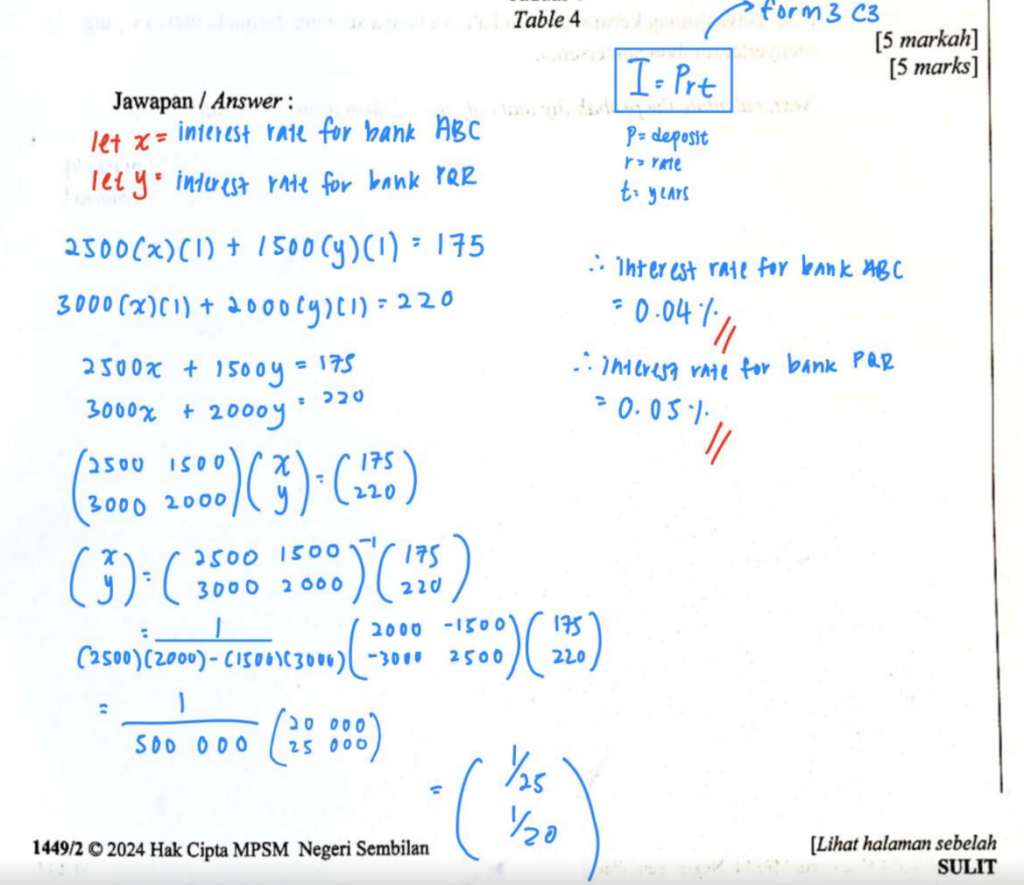 Table 4
form 3 C3
[5 markah]
[5 marks]
I = Prt
P = deposit
r = rate
t = years
Jawapan / Answer :
let x = interest rate for bank ABC
let y = interest rate for bank PQR
2500(x)(1) + 1500(y)(1) = 175
3000(x)(1) + 2000(y)(1) = 220
2500x + 1500y = 175
3000x + 2000y = 220
(2500 1500) (x) = (175)
(3000 2000) (y) (220)
(x) = (2500 1500)⁻¹ (175)
(y) (3000 2000) (220)
= 1 (2000 -1500) (175)
(2500)(2000) - (1500)(3000) (-3000 2500) (220)
= 1 (20 000)
500 000 (25 000)
= (1/25)
(1/20)
∴ interest rate for bank ABC
= 0.04 %
∴ interest rate for bank PQR
= 0.05 %
1449/2 © 2024 Hak Cipta MPSM Negeri Sembilan
[Lihat halaman sebelah
SULIT